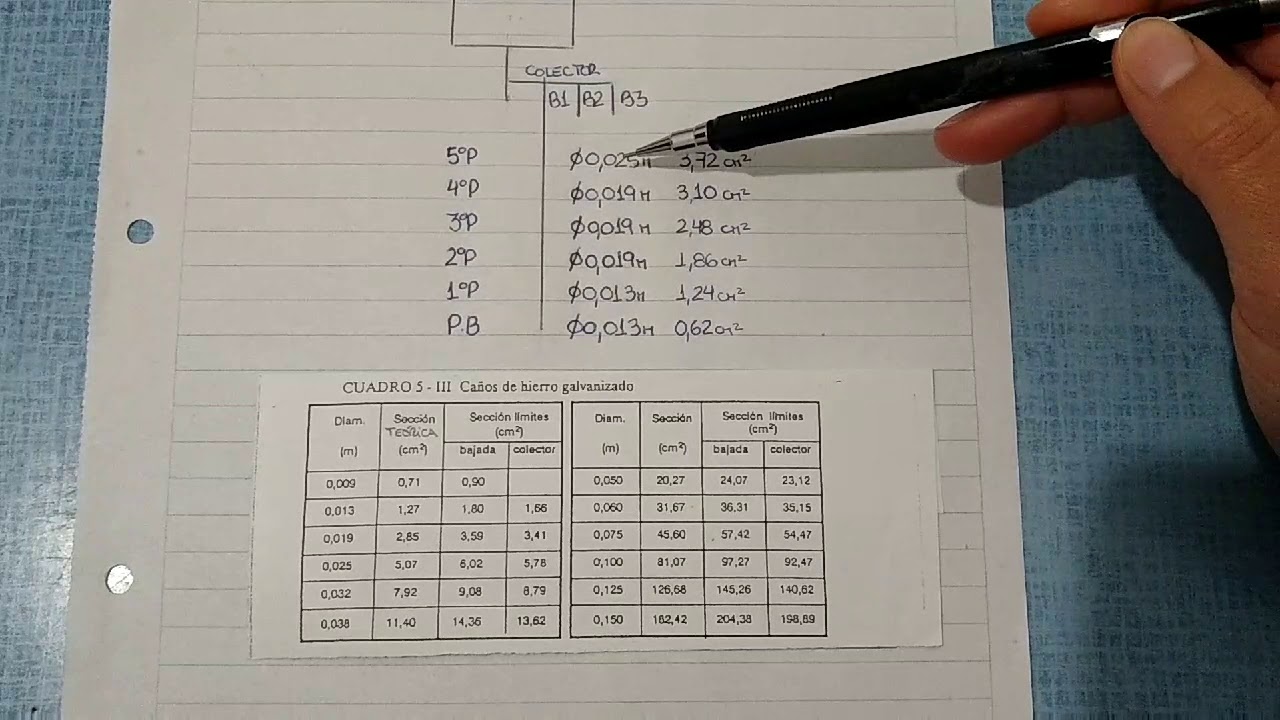 COLECTOR
B1 B2 B3
5ºP Ø0,025m 3,72 cm²
4ºP Ø0,019m 3,10 cm²
3ºP Ø0,019m 2,48 cm²
2ºP Ø0,019m 1,86 cm²
1ºP Ø0,013m 1,24 cm²
P.B Ø0,013m 0,62 cm²
CUADRO 5 - III Caños de hierro galvanizado
Diam. Sección Sección límites Diam. Sección Sección límites
TEÓRICA (cm²) (cm²)
(m) (cm²) bajada colector (m) (cm²) bajada colector
0,009 0,71 0,90 0,050 20,27 24,07 23,12
0,013 1,27 1,80 1,66 0,060 31,67 36,31 35,15
0,019 2,85 3,59 3,41 0,075 45,60 57,42 54,47
0,025 5,07 6,02 5,78 0,100 81,07 97,27 92,47
0,032 7,92 9,08 8,79 0,125 126,68 145,26 140,62
0,038 11,40 14,36 13,62 0,150 182,42 204,38 198,89